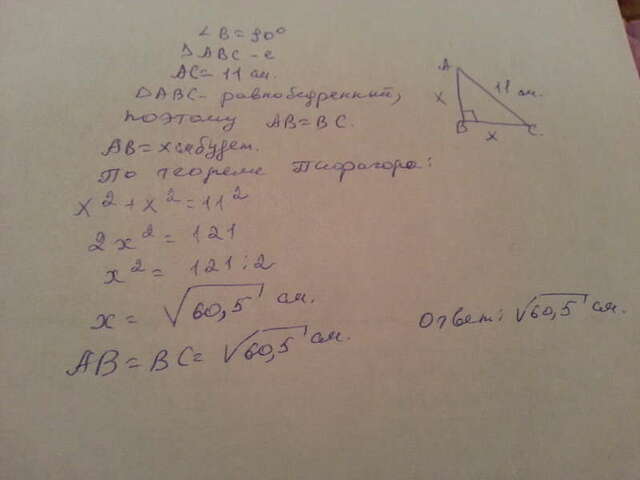 ∠B=90°
△ABC-
AC=11 см.
△ABC- равнобедренный,
поэтому AB=BC.
AB=x см будет.
По теореме Пифагора:
x²+x²=11²
2x²=121
x²=121:2
x=√60,5 см.
AB=BC=√60,5 см.
Ответ: √60,5 см.
A
11 см.
C
x
B
x